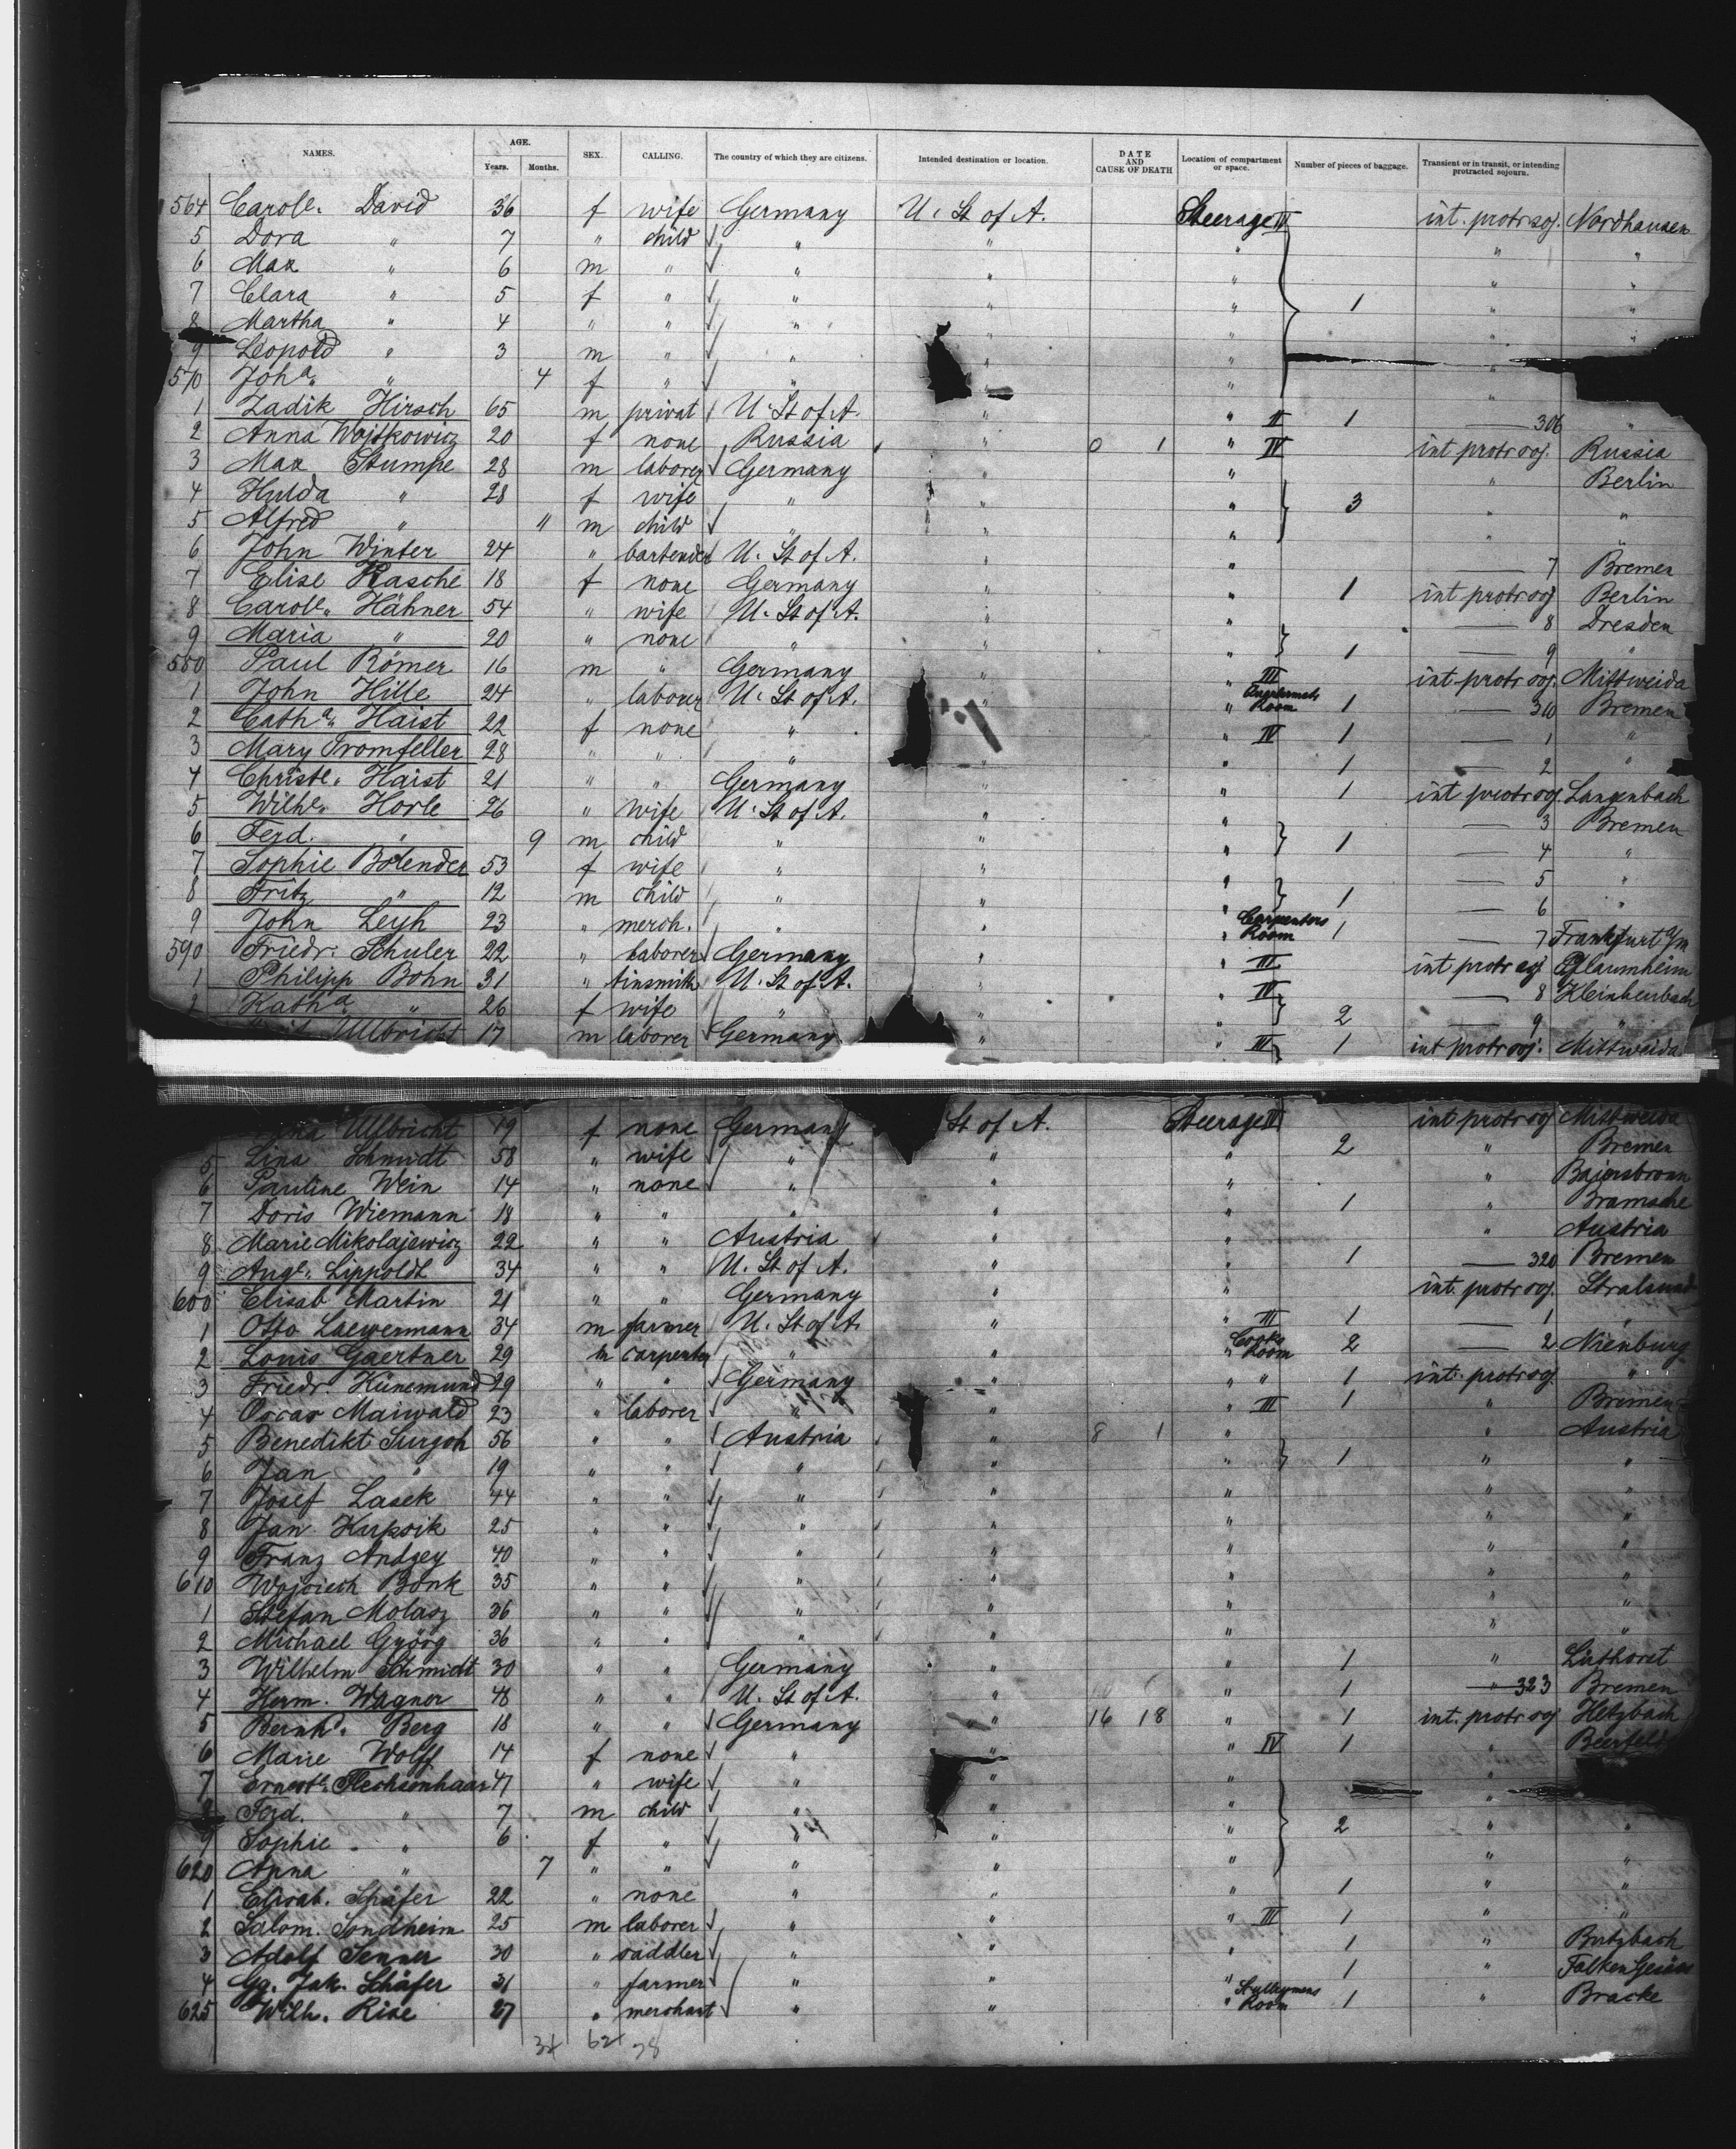 NAMES. AGE. Years. Months. SEX. CALLING. The country of which they are citizens. Intended destination or location. DATE AND CAUSE OF DEATH Location of compartment or space. Number of pieces of baggage. Transient or in transit, or intending protracted sojourn.
564 Carole. David 36 f wife Germany U. St of A. Steerage II int. protr soj. Nordhausen
5 Dora " 7 " child " " " " "
6 Max " 6 m " " " " " "
7 Clara " 5 f " " " " 1 " "
8 Martha " 4 " " " " " "
9 Leopold " 3 m " " " " "
570 Joha. " 4 f " " " " "
1 Zadik Hirsch 65 m privat U. St of A. " " II 1 — 306 "
2 Anna Wojtkowicz 20 f none Russia " 0 1 " IV int protr soj. Russia
3 Max Stumpe 28 m laborer Germany " " " Berlin
4 Hulda " 28 f wife " " " 3 " "
5 Alfred " 11 m child " " " " "
6 John Winter 24 " bartender U. St of A. " " — 7 Bremen
7 Elise Kasche 18 f none Germany " " 1 int protr soj Berlin
8 Carole. Hähner 54 " wife U. St of A. " " — 8 Dresden
9 Maria " 20 " none " " " 1 — 9 "
580 Paul Römer 16 m " Germany " " III int. protr soj. Mittweida
1 John Hille 24 " laborer U. St of A. " " Room 1 — 310 Bremen
2 Catha. Haist 22 f none " " IV 1 — 1 "
3 Mary Tromfeller 28 " " " " " 1 — 2 "
4 Christe. Haist 21 " " Germany " " 1 int protr soj. Langenbach
5 Wilhe. Horle 26 " wife U. St of A. " " — 3 Bremen
6 Ferd. " 9 m child " " " 1 — 4 "
7 Sophie Bolender 53 f wife " " " — 5 "
8 Fritz " 12 m child " " " 1 — 6 "
9 John Leyh 23 " merch. " " " Carpenters Room 1 — 7 Frankfurt a/m
590 Friedr. Schuler 22 " laborer Germany " " III int protr soj Pflaumheim
1 Philipp Bohn 31 " tinsmith U. St of A. " " IV — 8 Kleinheubach
2 Katha " 26 f wife " " " 2 — 9 "
Ulbricht 17 m laborer Germany " " III 1 int protr soj. Mittweida
Ulbricht 19 f none Germany St of A. Steerage II int protr soj Mittweida
5 Lina Schmidt 58 " wife " " " 2 " Bremen
6 Pauline Wein 14 " none " " " " Baiersbronn
7 Doris Wiemann 18 " " " " " 1 " Bramsche
8 Marie Mikolajewicz 22 " " Austria " " " Austria
9 Auge. Lippoldt 34 " " U. St of A. " " 1 — 320 Bremen
600 Elisab Martin 21 " " Germany " " int. protr soj. Stralsund
1 Otto Laewermann 34 m farmer U. St of A. " " III 1 — 1 "
2 Louis Gaertner 29 m carpenter " " " Cooks Room 2 — 2 Nienburg
3 Friedr. Künemund 29 " " Germany " " " 1 int. protr soj. "
4 Oscar Maiwald 23 " laborer " " " III 1 " Bremen
5 Benedikt Surgoh 56 " " Austria " 8 1 " " Austria
6 Jan " 19 " " " " " 1 " "
7 Josef Lasek 44 " " " " " " "
8 Jan Kupsik 25 " " " " " " "
9 Franz Andzey 40 " " " " " " "
610 Wojciech Bonk 35 " " " " " " "
1 Stefan Molasz 36 " " " " " " "
2 Michael Györg 36 " " " " " " "
3 Wilhelm Schmidt 30 " " Germany " " 1 " Lüthorst
4 Herm. Wagner 48 " " U. St of A. " " 1 — 323 Bremen
5 Bernhd. Berg 18 " " Germany " 16 18 " 1 int. protr soj Hetzbach
6 Marie Wolff 14 f none " " " IV 1 " Beerfeld
7 Erneste. Flechsenhaar 47 " wife " " " "
8 Ferd. " 7 m child " " " 2 " "
9 Sophie " 6 f " " " " "
620 Anna " 7 " " " " " " "
1 Elisab. Schäfer 22 " none " " " 1 " "
2 Salom. Sondheim 25 m laborer " " " III 1 " "
3 Adolf Senner 30 " saddler " " " 1 " Butzbach
4 Gg. Jak. Schäfer 31 " farmer " " " 1 " Falken Gesäss
625 Wilh. Rise 27 " merchant " " " Room 1 " Bracke